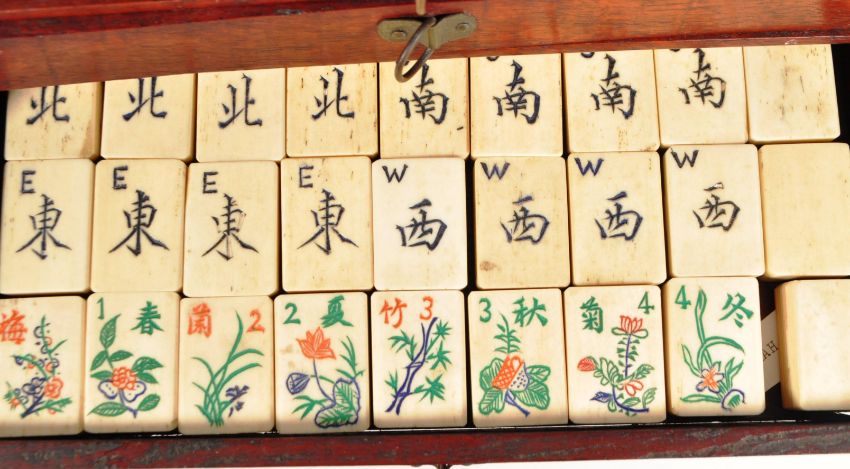 北 北 北 北 南 南 南 南
E E E E W W W W
東 東 東 東 西 西 西 西
梅 1 春 蘭 2 2 夏 竹 3 3 秋 菊 4 4 冬